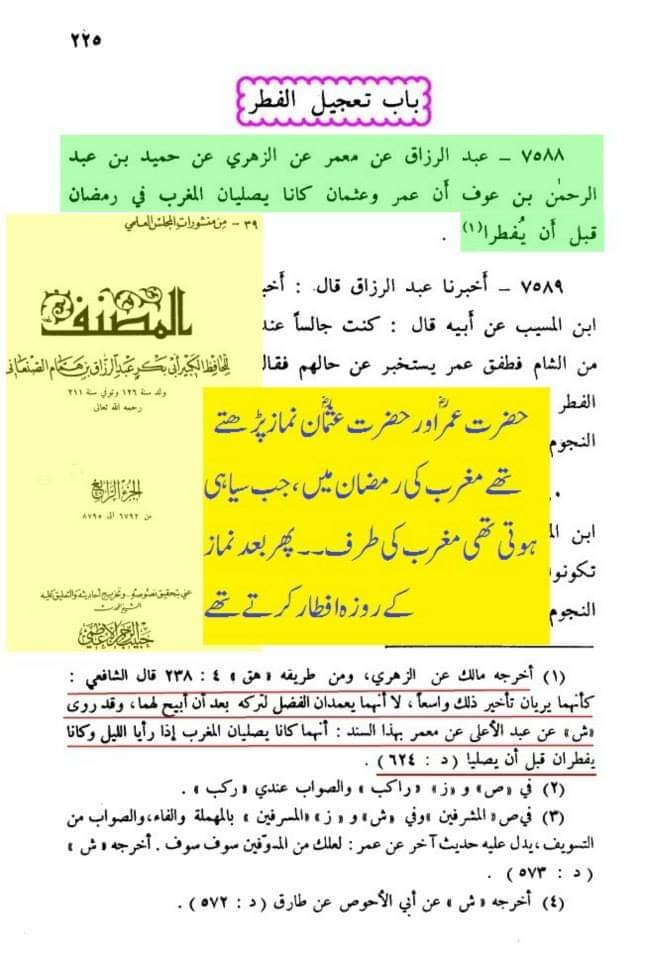 ٢٢٥
باب تعجيل الفطر
٧٥٨٨ – عبد الرزاق عن معمر عن الزهري عن حميد بن عبد
الرحمٰن بن عوف أن عمر وعثمان كانا يصليان المغرب في رمضان
قبل أن يُفطرا(١) .
٧٥٨٩ – أخبرنا عبد الرزاق قال : أخبـ
ابن المسيب عن أبيه قال : كنت جالساً عند
من الشام فطفق عمر يستخبر عن حالهم فقال
الفطر
النجوم
ابن المـ
تكونوا
النجوم
٣٩ – من منشورات المجلس العلمي
المصنف
للحافظ الكبير أبي بكر عبد الرزاق بن همام الصنعاني
ولد سنة ١٢٦ وتوفي سنة ٢١١
رحمه الله تعالى
الجزء الرابع
من ٦٧٩٢ الى ٨٧٩٥
عني بتحقيق نصوصه وتخريج أحاديثه والتعليق عليه
الشيخ المحدث
حبيب الرحمن الأعظمي
حضرت عمرؓ اور حضرت عثمانؓ نماز پڑھتے
تھے مغرب کی رمضان میں، جب سیاہی
ہوتی تھی مغرب کی طرف۔۔ پھر بعد نماز
کے روزہ افطار کرتے تھے
(١) أخرجه مالك عن الزهري، ومن طريقه «هق» ٤ : ٢٣٨ قال الشافعي :
كأنهما يريان تأخير ذلك واسعاً، لا أنهما يعمدان الفضل لتركه بعد أن أبيح لهما، وقد روى
«ش» عن عبد الأعلى عن معمر بهذا السند : أنهما كانا يصليان المغرب إذا رأيا الليل وكانا
يفطران قبل أن يصليا (د : ٦٢٤) .
(٢) في «ص» و «ز» «راكب» والصواب عندي «ركب» .
(٣) في ص «المشرفين» وفي «ش» و «ز» «المسرفين» بالمهملة والفاء، والصواب من
التسويف، يدل عليه حديث آخر عن عمر : لعلك من المدوّفين سوف سوف . أخرجه «ش»
(د : ٥٧٣) .
(٤) أخرجه «ش» عن أبي الأحوص عن طارق (د : ٥٧٢) .